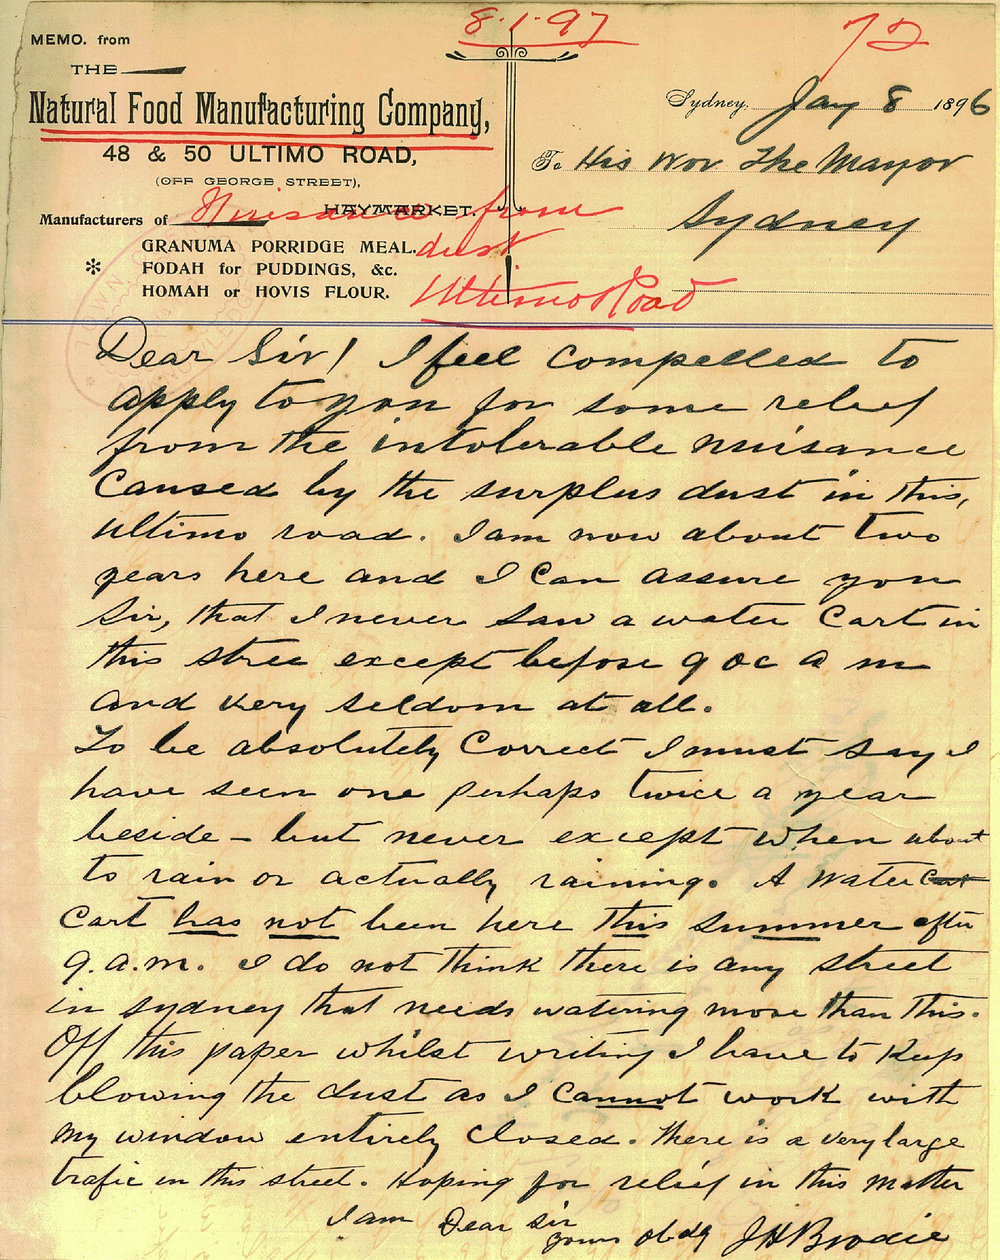 8.1.97
72
MEMO. from
THE
Natural Food Manufacturing Company,
48 & 50 ULTIMO ROAD,
(OFF GEORGE STREET),
HAYMARKET.
Manufacturers of
GRANUMA PORRIDGE MEAL.
* FODAH for PUDDINGS, &c.
HOMAH or HOVIS FLOUR.
Nuisance from
dust
Ultimo Road
Sydney, Jany 8 1896
To His Wor The Mayor
Sydney
Dear Sir! I feel compelled to
apply to you for some relief
from the intolerable nuisance
Caused by the surplus dust in this,
ultimo road. I am now about two
years here and I Can assure you
Sir, that I never saw a water Cart in
this stree except before 9 oc a m
and very seldom at all.
To be absolutely Correct I must say I
have seen one perhaps twice a year
beside – but never except when about
to rain or actually raining. A Water Cart
Cart has not been here this summer after
9.a.m. I do not think there is any street
in Sydney that needs watering more than this.
Off this paper whilst writing I have to keep
blowing the dust as I cannot work with
my window entirely closed. There is a very large
trafic in this street. Hoping for relief in this matter
I am Dear Sir
yours obdly J H Brodie